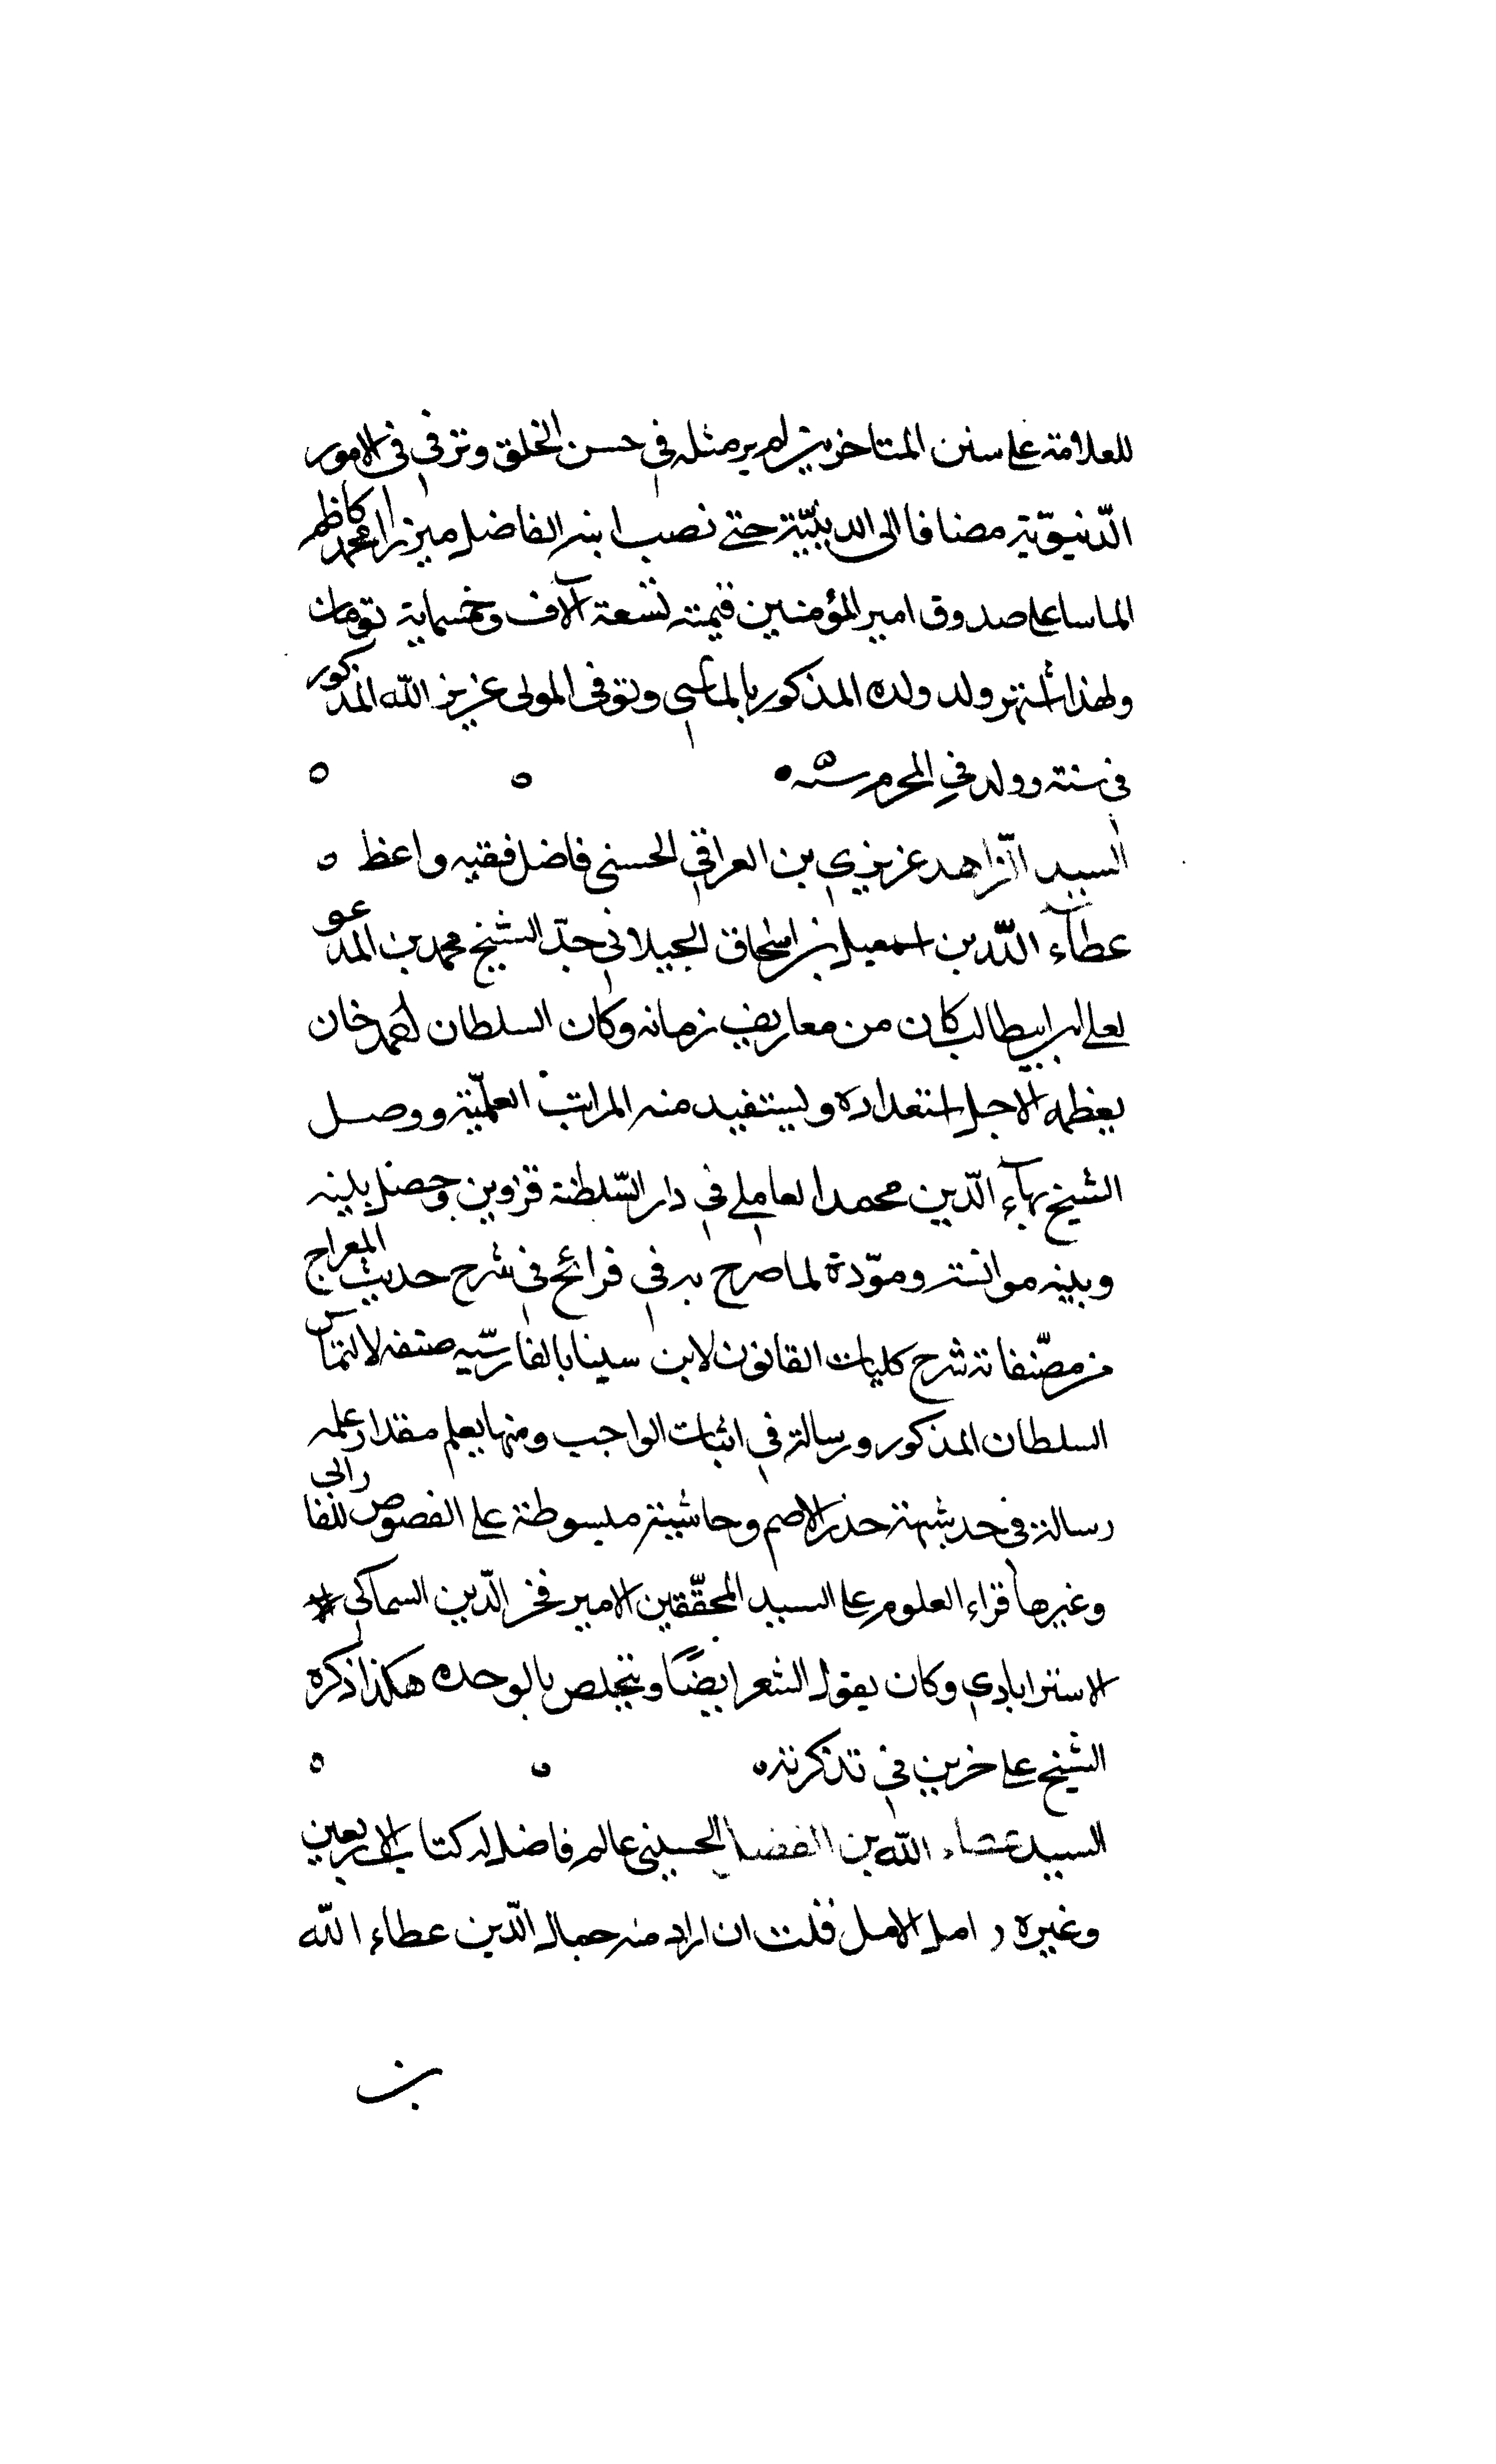 للعلامة على سنن المتاخرين لم ير مثله في حسن الخلق وترقى في الامور
الدّنيّويّة مضافا الى الدينيّة حتى نصب ابنه الفاضل ميرزا محمد كاظم
الماسا على صدوق امير المؤمنين قيمته تسعة آلاف وخمسماية تومان
ولهذا اشتهر ولد ولده المذكور بالماسي وتوفى المولى عزيز الله المذكور
في سنته وولد في المحرم سنه
السيد الزاهد عزيزي بن العراقي الحسني فاضل فقيه واعظ
عطآء اللّه بن اسمعيل بن اسحاق الجيلاني جدّ الشيخ محمد بن المدعو
بعلي بن ابيطالب كان من معاريف زمانه وكان السلطان احمد خان
يعظمه لاجل استعداده ويستفيد منه المراتب العلميّة ووصل
الشيخ بهآء الدّين محمد العاملي في دار السّلطنة قزوين وحصل بينه
وبينه موانسة ومودّة لما صرح به في فرائح في شرح حديث المعراج
من مصّنفاته شرح كليات القانون لابن سينا بالفارسّيه صنفه لالتماس
السلطان المذكور ورسالة في اثبات الواجب ومنها يعلم مقدار علمه
رسالة في حد شبهة حذر الاصم وحاشية مبسوطة على الفصوص للفارابى
وغيرها قراء العلوم على السيد المحقّقين الامير فخر الدّين السماكي
الاسترابادي وكان يقول الشعر ايضًا ويتخلص بالوحده هكذا ذكره
الشيخ على حزين في تذكرته
السيد عطاء الله بن الفضل الحسيني عالم فاضل له كتاب الاربعين
وغيره ر امل الامل قلت ان اراد منه جمال الدّين عطاء الله
بن